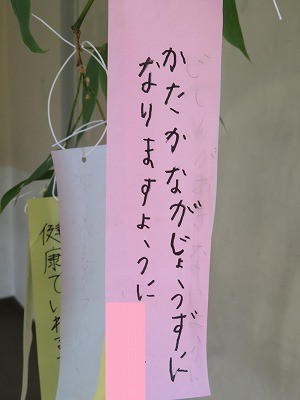 かたかながじょうずに
なりますように
健康でいれます